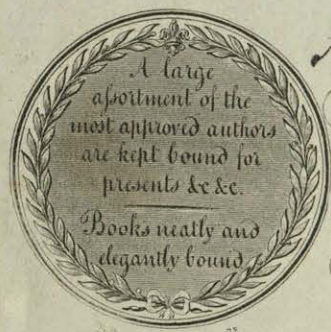 A large
aſsortment of the
most approved authors
are kept bound for
presents &c &c.
Books neatly and
elegantly bound